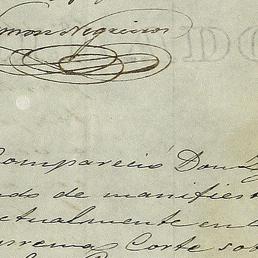 mon Negreiros
Compareció Don
do de manifiest
ctualmente en
uprema Corte so